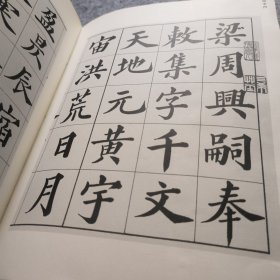 梁周興嗣奉
敕集字千文
天地元黃宇
宙洪荒日月
盈昃辰宿